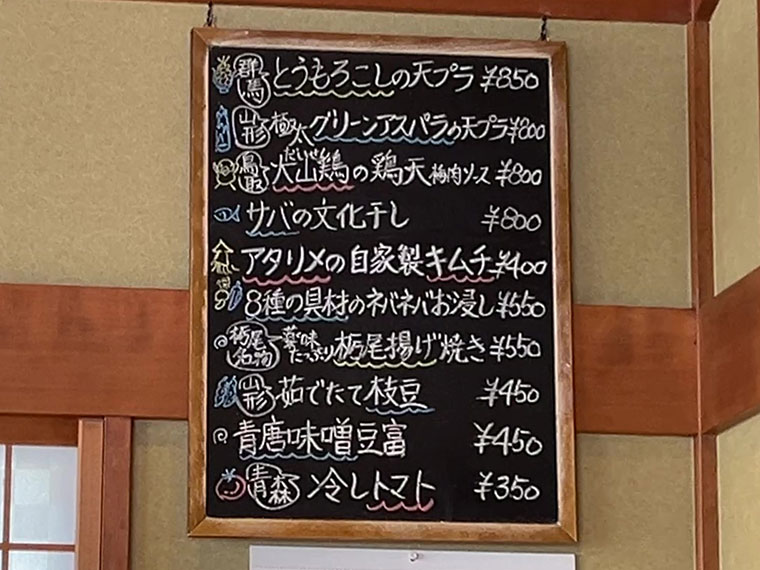 群馬 とうもろこしの天プラ ¥850
山形 極太グリーンアスパラの天プラ ¥800
鳥取 大山鶏の鶏天 梅肉ソース ¥800
だいせん
サバの文化干し ¥800
アタリメの自家製キムチ ¥400
8種の具材のネバネバお浸し ¥550
栃尾名物 薬味たっぷり 栃尾揚げ焼き ¥550
山形 茹でたて枝豆 ¥450
青唐味噌豆富 ¥450
青森 冷しトマト ¥350